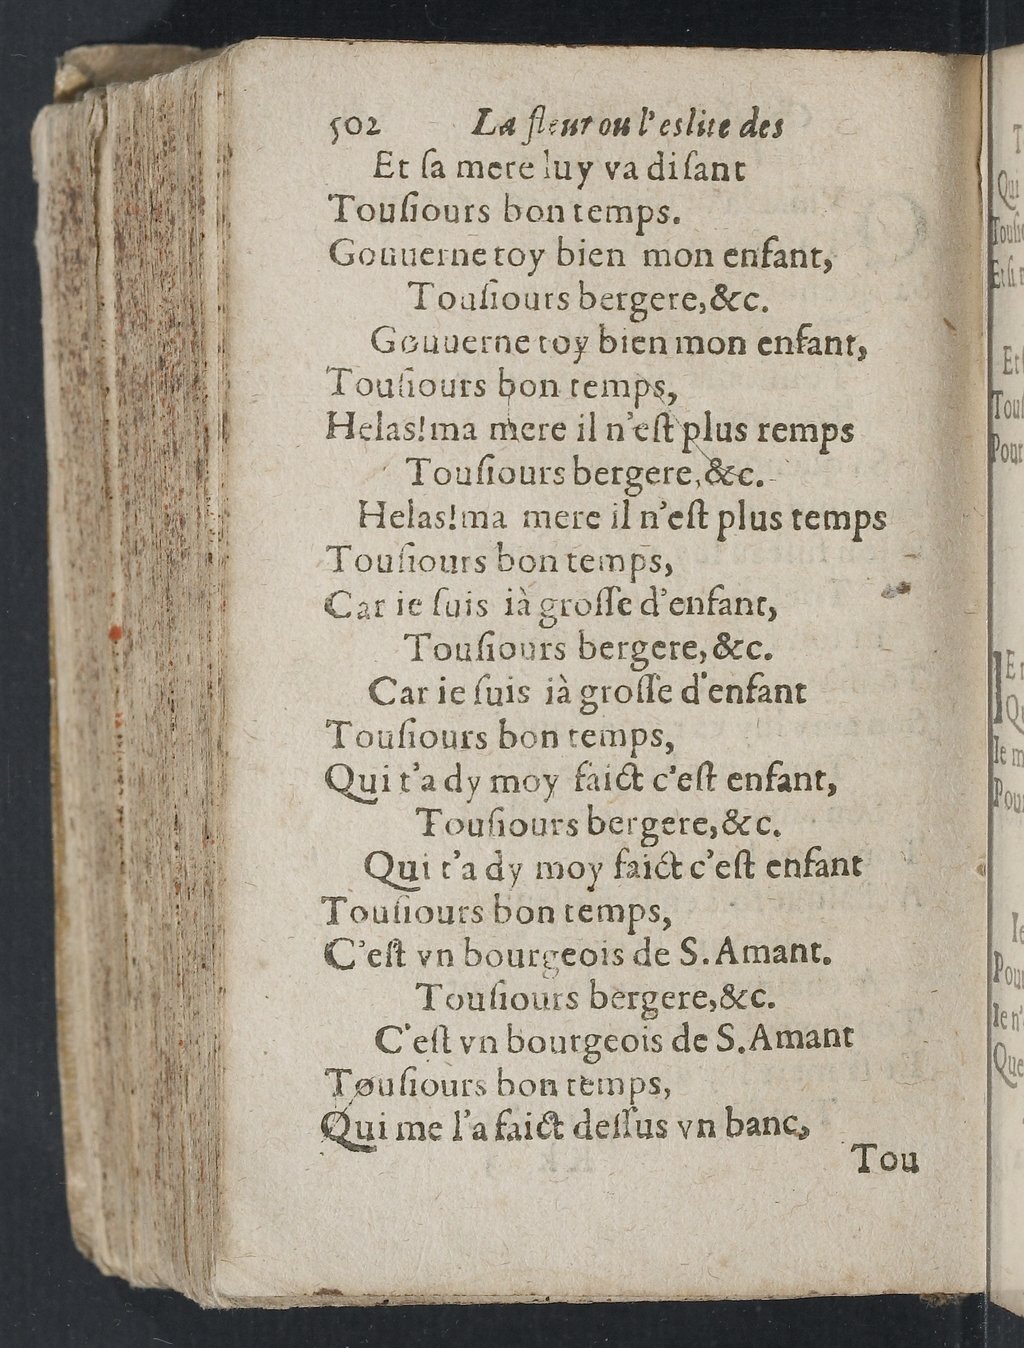 502 La fleur ou l'eslite des
Et ſa mere luy va diſant
Touſiours bon temps.
Gouuerne toy bien mon enfant,
Touſiours bergere,&c.
Gouuerne toy bien mon enfant,
Touſiours bon temps,
Helas!ma mere il n'eſt plus remps
Touſiours bergere,&c.
Helas!ma mere il n'eſt plus temps
Touſiours bon temps,
Car ie ſuis ià groſſe d'enfant,
Touſiours bergere,&c.
Car ie ſuis ià groſſe d'enfant
Touſiours bon temps,
Qui t'a dy moy faict c'eſt enfant,
Touſiours bergere,&c.
Qui t'a dy moy faict c'eſt enfant
Touſiours bon temps,
C'eſt vn bourgeois de S. Amant.
Touſiours bergere,&c.
C'eſt vn bourgeois de S. Amant
Touſiours bon temps,
Qui me l'a faict deſſus vn banc,
Tou